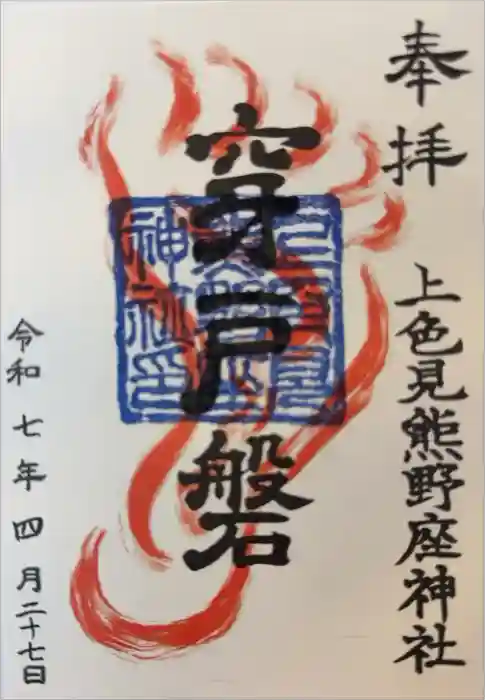 奉拝
上色見熊野座神社
穿戸磐
上色見熊野座神社印
令和七年四月二十七日